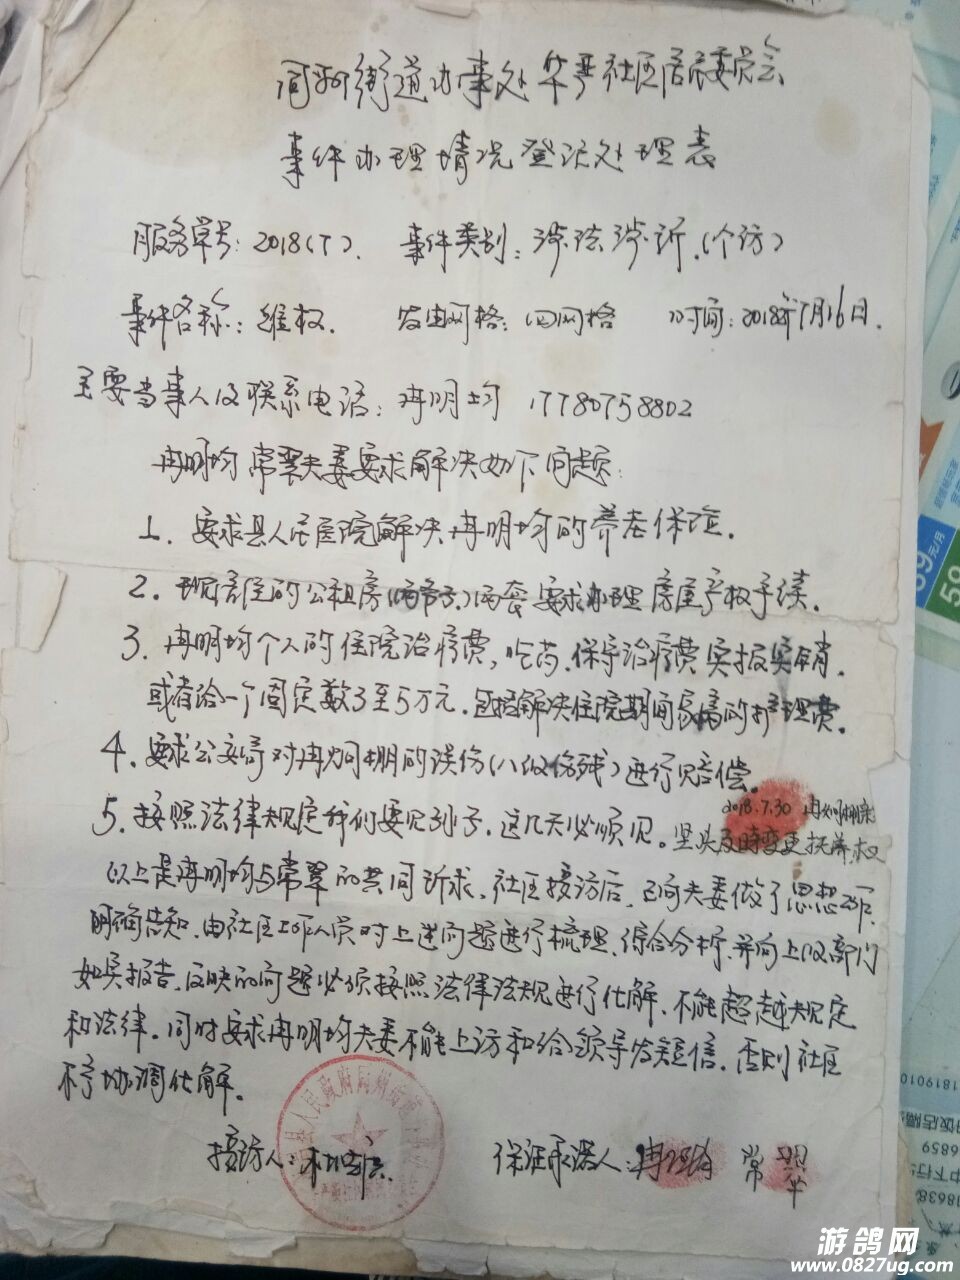 同州街道办事处华严社区居民委员会
事件办理情况登记处理表
服务单号：2018(7). 事件类别：涉法涉诉.(个访)
事件名称：维权. 发由网格：四网格 时间：2018年7月16日.
主要当事人及联系电话：冉明均 17780758802
冉明均常翠夫妻要求解决如下问题：
1. 要求县人民医院解决冉明均的养老保险.
2. 现居住的公租房 两套 要求办理房屋产权手续.
3. 冉明均个人的住院治疗费, 吃药. 保守治疗费实报实销.
或者给一个固定数3至5万元. 包括解决住院期间 的护理费.
4. 要求公安局对冉炯棚的误伤(八级伤残)进行赔偿.
2018.7.30 冉炯棚
5. 按照法律规定我们要见孙子. 这几天必须见. 坚决及时变更抚养权
以上是冉明均与常翠的共同诉求. 社区接访后, 已向夫妻做了思想工作.
明确告知. 由社区工作人员对上述问题进行梳理. 综合分析. 并向上级部门
如实报告. 反映的问题必须按照法律法规进行化解. 不能超越规定
和法律. 同时要求冉明均夫妻不能上访和给领导发短信. 否则社区
不予协调化解.
接访人： 保证承诺人：冉明均 常翠
游鸽网
www.0827ug.com